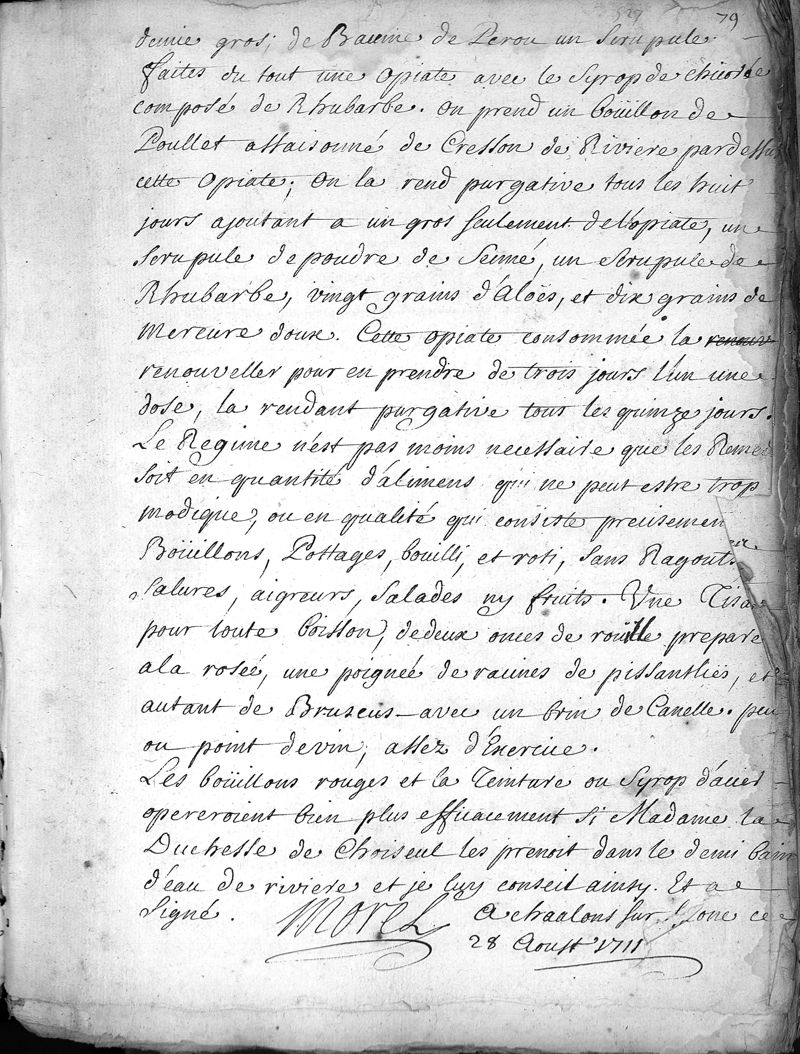 79
demie gros; de Baume de Perou un Scrupule
faites du tout une Opiate avec le Syrop de chicorée
composé de Rhubarbe. On prend un boüillon de
Poullet assaisonné de Cresson de Riviere par dessu
cette Opiate; On la rend purgative tous les huit
jours ajoutant a un gros seulement de l'opiate, un
Scrupule de poudre de Senné, un Scrupule de
Rhubarbe, vingt grains d'Aloës, et dix grains de
Mercure doux. Cette opiate consommée la renouv
renouveller pour en prendre de trois jours l'un une
dose, la rendant purgative tous les quinze jours.
Le Regime n'est pas moins necessaire que les Reme
soit en quantité d'alimens qui ne peut estre trop
modique, ou en qualité qui consiste precisemen
en
Boüillons, Pottages, boüilli, et roti, sans Ragouts
Salures, aigreurs, Salades ny fruits. Une Tisa
pour toute boisson, de deux onces de rouille preparé
a la rosée, une poignée de racines de pissanlies, et
autant de Bruscus avec un brin de Canelle. peu
ou point de vin, assez d'Exercice.
Les boüillons rouges et la Teinture ou Syrop d'acier
opereroient bien plus efficacement si Madame la
Duchesse de Choiseul les prenoit dans le demi bain
d'eau de riviere et je luy conseil ainsy. Et a
Signé. Morel A chaalons sur Saone ce
28 Aoust 1711